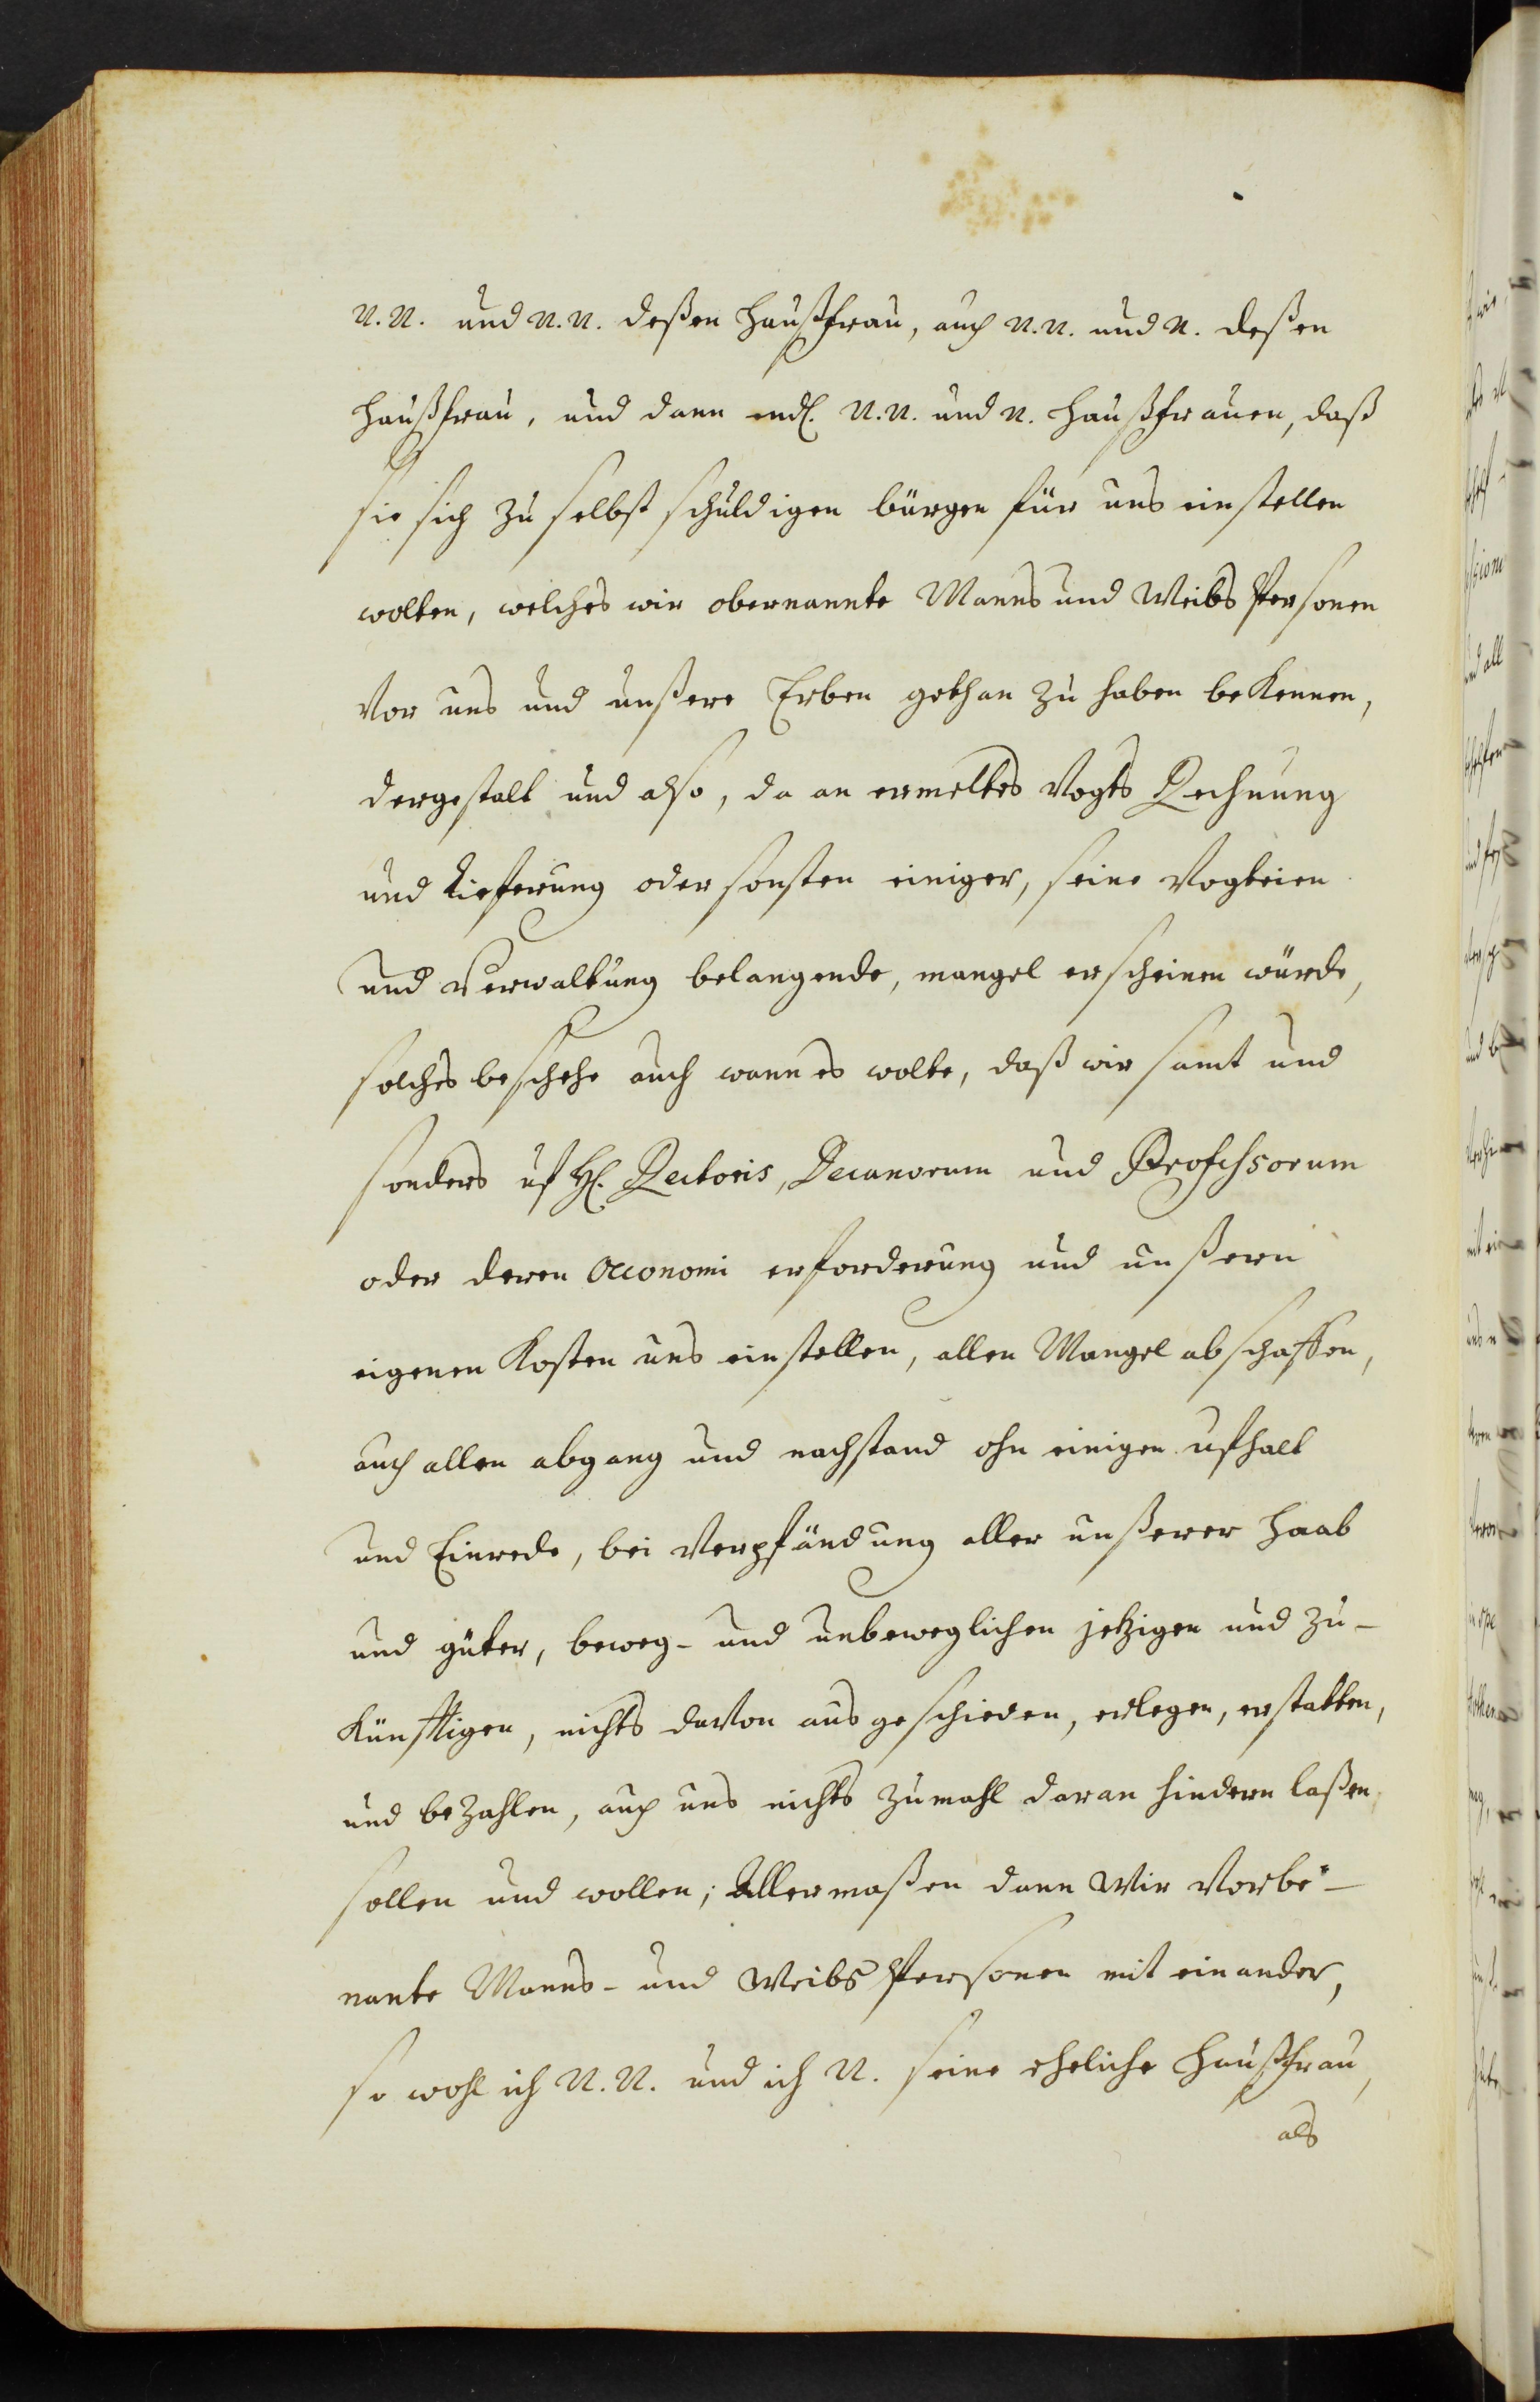 N.N. und N.N. deßen Haußfrau, auch N.N. und N. deßen
Haußfrau, und dann endl. N.N. und N. Haußfrauen, daß
sie sich zu selbst schuldigen bürgen für uns einstellen
wolten, welches wir obernannte Manns und Weibs Personen
vor uns und unßere Erben gethan zu haben bekennen,
dergestalt und also, da an ermeltes Vogts Rechnung
und Lieferung oder sonsten einiger, seine Vogteien
und Verwaltung belangende, mangel erscheinen würde,
solches beschehe auch wann es wolte, daß wir samt und
sonders uf H. Rectoris, Decanorum und Professorum
oder deren Oeconomi erforderung und unßern
eigenen Kosten uns einstellen, allen Mangel abschaffen,
auch allen abgang und nachstand ohn einigen ufhalt
und Einrede, bei Verpfändung aller unßerer Haab
und güter, beweg- und unbeweglichen jetzigen und zu-
künfftigen, nichts davon ausgeschieden, erlegen, erstatten,
und bezahlen, auch uns nichts zumahl daran hindern laßen
sollen und wollen; Allermaßen dann Wir Vorbe-
nante Manns- und Weibs Personen mit einander,
so wohl ich N.N. und ich N. seine eheliche Haußfrau,
als